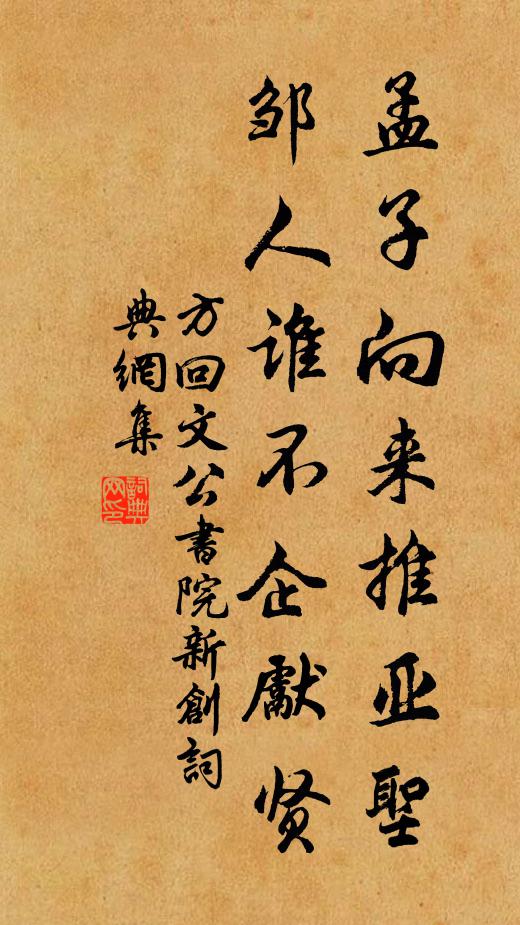 孟子向来推亚聖
邹人谁不企獻贤
方回文公書院新創詞
典網集
詞典網印